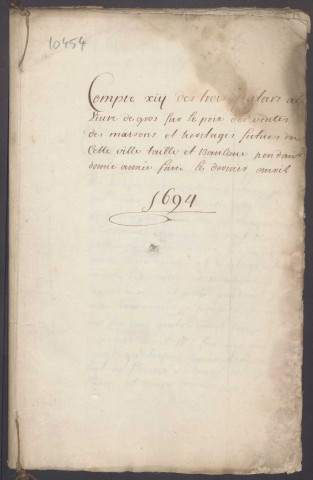 10454
Compte xiiij des trois patars a la
Livre de gros sur le prix des ventes
des maisons et heritages scituez en
Cette ville taille et Banlieue pendant
donné année finie le dernier avril
1694